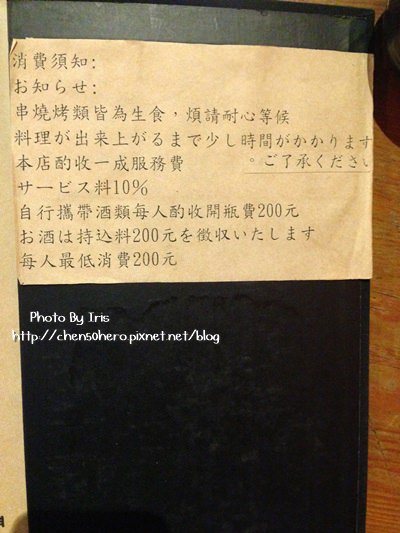 消費須知:
お知らせ:
串燒烤類皆為生食，煩請耐心等候
料理が出来上がるまで少し時間がかかります
。ご了承ください
本店酌收一成服務費
サービス料10%
自行攜帶酒類每人酌收開瓶費200元
お酒は持込料200元を徴収いたします
每人最低消費200元
Photo By Iris
http://chen50hero.pixnet.net/blog